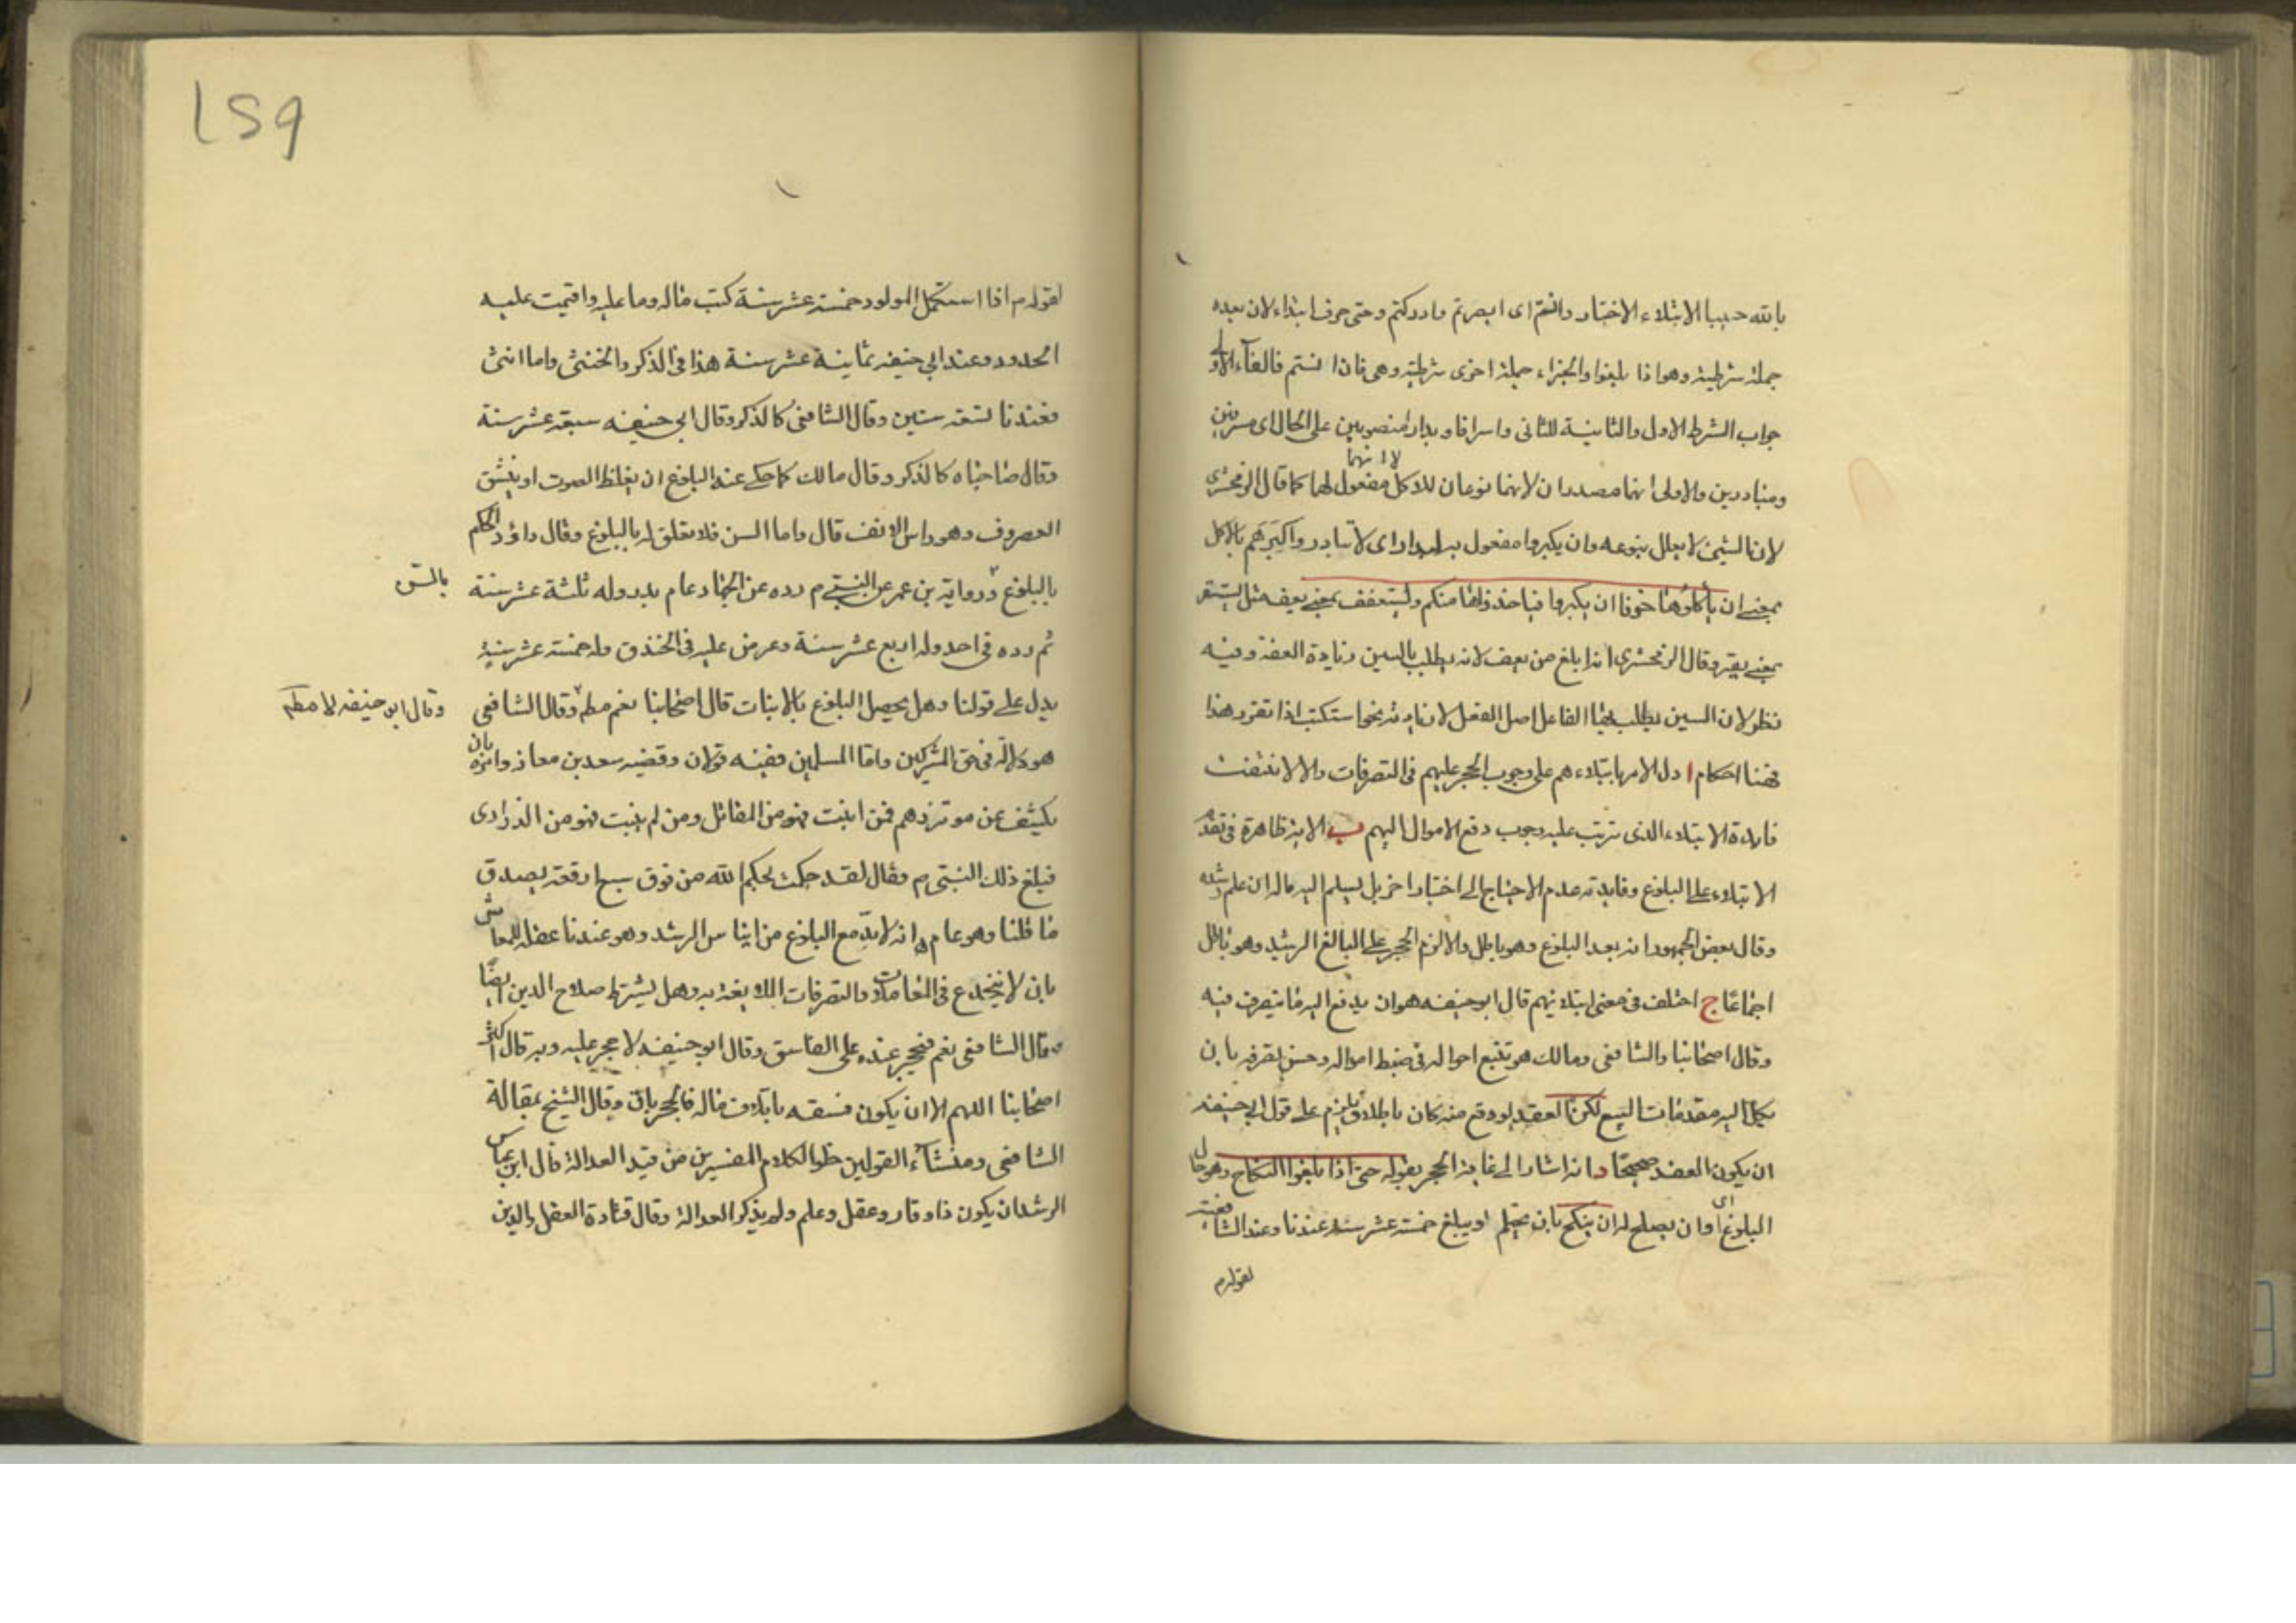 بالله حسيبا الابتلاء الاختبار وانستم اى ابصرتم وادركتم وحتى حرف ابتداء لان بعده
جملة شرطية وهو اذا بلغوا والجزاء جملة اخرى شرطية وهى فان انستم فالفآء الاولى
جواب الشرط الاول والثانية للثانى واسرافا وبدارا منصوبين على الحال اى مسرفين
ومبادرين والاولى انهما مصدران لانهما نوعان للاكل لا انهما مفعول لهما كما قال الزمخشرى
لان الشئ لا يعلل بنوعه وان يكبروا مفعول به لبدارا اى لا تبادروا كبرهم بالاكل
بمعنى ان تأكلوها خوفا ان يكبروا فياخذوها منكم وليستعفف بمعنى يعف مثل استقر
بمعنى يقر وقال الزمخشرى انه ابلغ من يعف لانه يطلب بالسين زيادة العفة وفيه
نظر لان السين يطلب بها الفاعل اصل الفعل لا زيادته نحو استكتب اذا تقرر هذا
فهنا احكام ا دل الامر بابتلاءهم على وجوب الحجر عليهم فى التصرفات والا لانتفت
فايدة الابتلاء الذى يترتب عليه وجوب دفع الاموال اليهم ب الاية ظاهرة فى تقدم
الابتلاء على البلوغ وفايدته عدم الاحتياج الى اختبار اخر بل يسلم اليه ماله ان علم رشده
وقال بعض الجمهور انه بعد البلوغ وهو باطل والا لزم الحجر على البالغ الرشيد وهو باطل
اجماعا ج اختلف فى معنى ابتلائهم قال ابو حنيفه هو ان يدفع اليه ما يتصرف فيه
وقال اصحابنا والشافعى ومالك هو تتبع احواله فى ضبط امواله وحسن تصرفه بان
يكل اليه مقدمات البيع لكن العقد لو وقع منه كان باطلا ويلزم على قول ابى حنيفه
ان يكون العقد صحيحا د انه اشار الى غاية الحجر بقوله حتى اذا بلغوا النكاح وهو حال
البلوغ اى اوان يصلح له ان ينكح بان يحتلم او يبلغ خمسة عشر سنة عندنا وعند الشافعية
لقوله م
١٥٩
لقوله م اذا استكمل المولود خمسة عشر سنة كتب ماله وما عليه واقيمت عليه
الحدود وعند ابي حنيفه ثمانية عشر سنة هذا فى الذكر والخنثى واما انثى
فعندنا لتسعة سنين وقال الشافعى كالذكر وقال ابي حنيفه سبعة عشر سنة
وقال صاحباه كالذكر وقال مالك كما حكى عنه البلوغ ان يغلظ الصوت او ينشق
الغضروف وهو راس الانف قال واما السن فلا تعلق له بالبلوغ وقال داؤد لا حكم
بالبلوغ ورواية بن عمر عن النبي م رده عن الجهاد عام بدر وله ثلثة عشر سنة
بالسن
ثم رده فى احد وله اربع عشر سنة وعرض عليه فى الخندق وله خمسة عشر سنة
يدل على قولنا وهل يحصل البلوغ بالانبات قال اصحابنا نعم مطم وقال الشافعى
وقال ابو حنيفه لا مطم
هو دلالة فى حق المشركين واما المسلمين ففيه قولان وقضية سعد بن معاذ وامره بان
يكشف عن موتزرهم فمن انبت فهو من المقاتل ومن لم ينبت فهو من الذرارى
فبلغ ذلك النبى م وقال لقد حكمت بحكم الله من فوق سبع ارقعة يصدق
ما قلنا وهو عام ه انه لا بد مع البلوغ من ايناس الرشد وهو عندنا عقل المعاش
بان لا ينخدع فى المعاملات والتصرفات اللايقة به وهل يشترط صلاح الدين ايضا
قال الشافعى نعم فيحجر عنده على الفاسق وقال ابو حنيفه لا حجر عليه وبه قال اكثر
اصحابنا اللهم الا ان يكون فسقه باتلاف ماله فالحجر باق وقال الشيخ بمقالة
الشافعى ومنشآء القولين خلو الكلام المفسرين من قيد العدالة قال ابن عباس
الرشد ان يكون ذا وقار وعقل وعلم ولم يذكر العدالة وقال قتادة العقل والدين